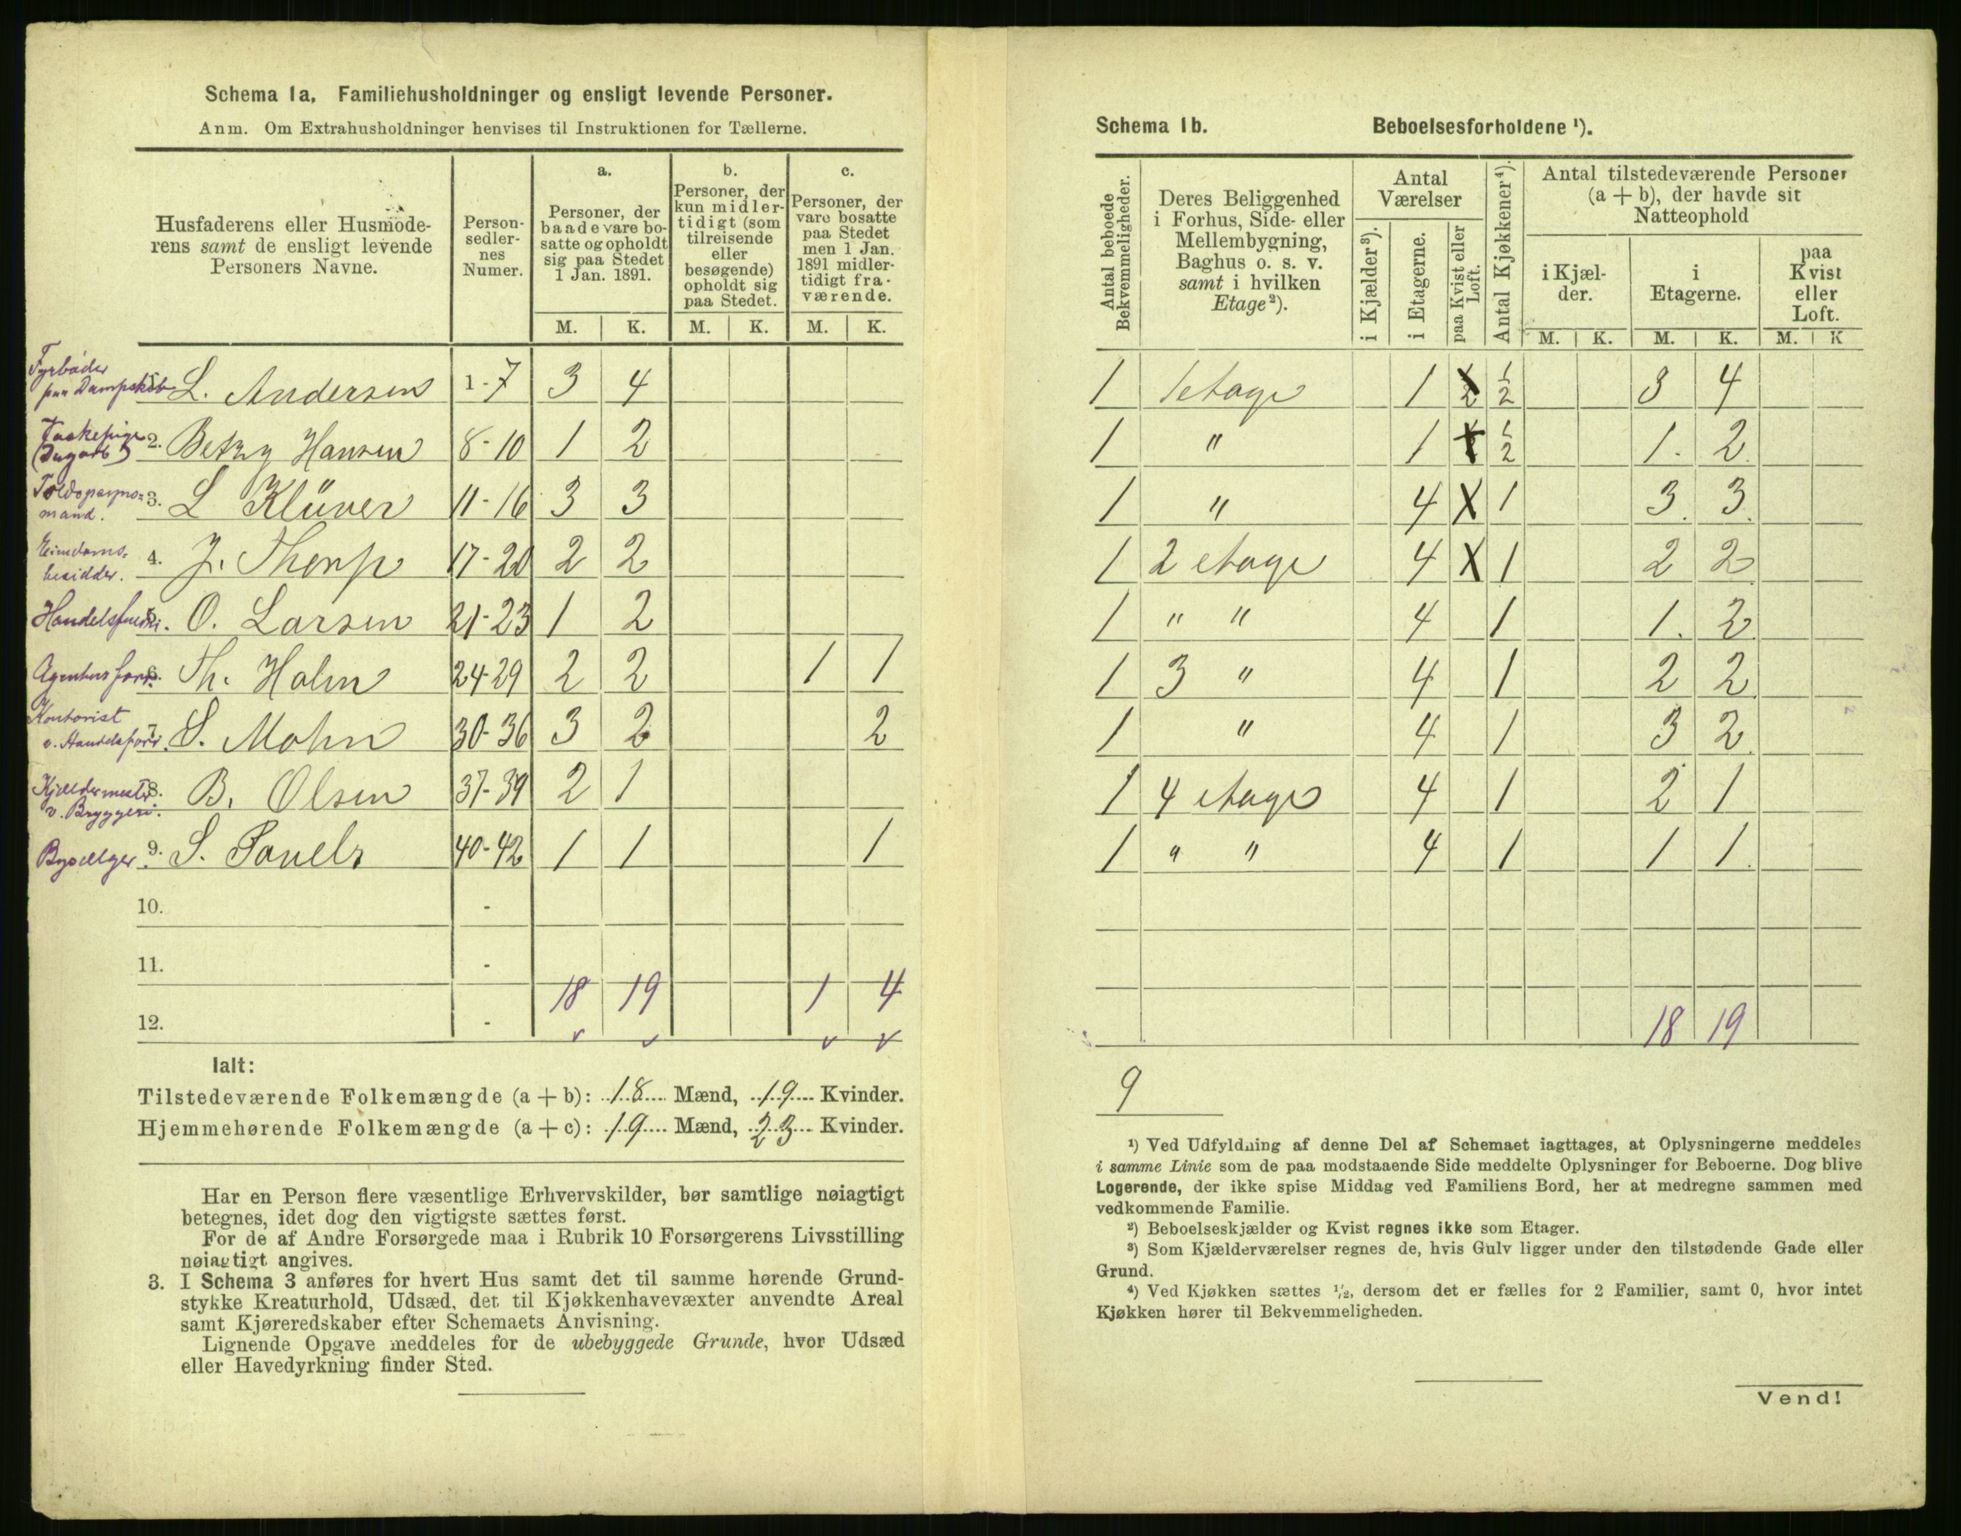 Schema 1a. Familiehusholdninger og ensligt levende Personer.
Anm. Om Extrahusholdninger henvises til Instruktionen for Tællerne.
Husfaderens eller Husmode-
rens samt de ensligt levende
Personers Navne.
Person-
sedler-
nes
Numer.
a.
Personer, der
baade vare bo-
satte og opholdt
sig paa Stedet
1 Jan. 1891.
b.
Personer, der
kun midler-
tidigt (som
tilreisende
eller
besøgende)
opholdt sig
paa Stedet.
c.
Personer, der
vare bosatte
paa Stedet
men 1 Jan.
1891 midler-
tidigt fra-
værende.
M. K. M. K. M. K.
Fyrbøder
paa Dampskib L. Andersen 1-7 3 4
2. Betzy Hansen 8-10 1 2
3. L Klüver 11-16 3 3
mand.
4. J. Thorp 17-20 2 2
besidder.
O. Larsen 21-23 1 2
Th. Holm 24-29 2 2 1 1
Kontorist
v. Handelsforr. 7. S. Mohn 30-36 3 2 2
8. B. Olsen 37-39 2 1
v. Bryggeri.
Bysælger 9. S. Pauels 40-42 1 1 1
10. -
11. -
18 19 1 4
12. -
Ialt:
Tilstedeværende Folkemængde (a + b): 18 Mænd, 19 Kvinder.
Hjemmehørende Folkemængde (a + c): 19 Mænd, 23 Kvinder.
Har en Person flere væsentlige Erhvervskilder, bør samtlige nøiagtigt
betegnes, idet dog den vigtigste sættes først.
For de af Andre Forsørgede maa i Rubrik 10 Forsørgerens Livsstilling
nøiagtigt angives.
3. I Schema 3 anføres for hvert Hus samt det til samme hørende Grund-
stykke Kreaturhold, Udsæd, det til Kjøkkenhavevæxter anvendte Areal
samt Kjøreredskaber efter Schemaets Anvisning.
Lignende Opgave meddeles for de ubebyggede Grunde, hvor Udsæd
eller Havedyrkning finder Sted.
Schema 1b. Beboelsesforholdene ¹).
Antal beboede
Bekvemmeligheder.
Deres Beliggenhed
i Forhus, Side- eller
Mellembygning,
Baghus o. s. v.
samt i hvilken
Etage²).
Antal
Værelser
i Kjælder³).
i Etagerne.
paa Kvist eller
Loft.
Antal Kjøkkener⁴).
Antal tilstedeværende Personer
(a + b), der havde sit
Natteophold
i Kjæl-
der.
i
Etagerne.
paa
Kvist
eller
Loft.
M. K. M. K. M. K
1 1 etage 1 ½ 3 4
1 " 1 ½ 1. 2
1 " 4 X 1 3. 3.
1 2 etage 4 X 1 2 2
1 " " 4 1 1. 2
1 3 " 4 1 2 2
1 " 4 1 3 2
1 4 etage 4 1 2 1
1 " " 4 1 1 1
18 19
9
¹) Ved Udfyldning af denne Del af Schemaet iagttages, at Oplysningerne meddeles
i samme Linie som de paa modstaaende Side meddelte Oplysninger for Beboerne. Dog blive
Logerende, der ikke spise Middag ved Familiens Bord, her at medregne sammen med
vedkommende Familie.
²) Beboelseskjælder og Kvist regnes ikke som Etager.
³) Som Kjælderværelser regnes de, hvis Gulv ligger under den tilstødende Gade eller
Grund.
⁴) Ved Kjøkken sættes ½, dersom det er fælles for 2 Familier, samt 0, hvor intet
Kjøkken hører til Bekvemmeligheden.
Vend!